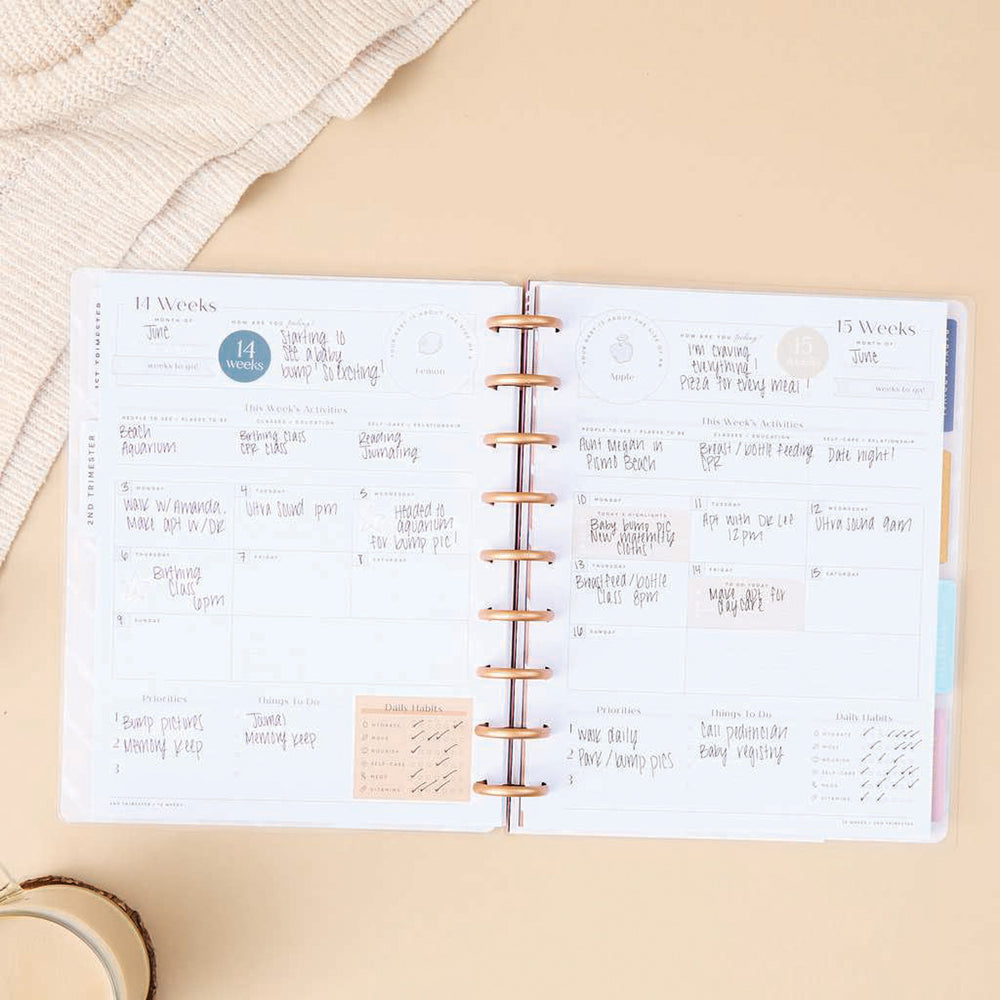 1ST TRIMESTER
2ND TRIMESTER
14 Weeks
MONTH OF
June
weeks to go!
HOW ARE YOU feeling?
14
weeks
Starting to
see a baby
bump! So exciting!
YOUR BABY IS ABOUT THE SIZE OF A
Lemon
This Week's Activities
PEOPLE TO SEE / PLACES TO BE
Beach
Aquarium
CLASSES / EDUCATION
Birthing class
CPR class
SELF-CARE / RELATIONSHIP
Reading
Journaling
3 MONDAY
Walk w/Amanda.
Make apt w/DR
4 TUESDAY
Ultra sound 1pm
5 WEDNESDAY
Headed to
aquarium
for bump pic!
6 THURSDAY
Birthing
Class
6pm
7 FRIDAY
8 SATURDAY
9 SUNDAY
Priorities
1 Bump pictures
2 Memory keep
3
Things To Do
Journal
Memory keep
Daily Habits
HYDRATE
MOVE
NOURISH
SELF-CARE
REST
VITAMINS
2ND TRIMESTER
15 Weeks
MONTH OF
June
weeks to go!
HOW ARE YOU feeling?
15
weeks
I'm craving
everything!
Pizza for every meal!
YOUR BABY IS ABOUT THE SIZE OF A
Apple
This Week's Activities
PEOPLE TO SEE / PLACES TO BE
Aunt Megan in
Pismo Beach
CLASSES / EDUCATION
Breast/bottle feeding
CPR
SELF-CARE / RELATIONSHIP
Date night!
10 MONDAY
TODAY'S HIGHLIGHTS
Baby bump pic
New maternity
cloths!
11 TUESDAY
Apt with DR Lee
12pm
12 WEDNESDAY
Ultra sound 9am
13 THURSDAY
Breastfeed/bottle
class 8pm
14 FRIDAY
TO DO TODAY
Make apt for
daycare
15 SATURDAY
16 SUNDAY
Priorities
1 Walk daily
2 Park/bump pics
3
Things To Do
Call peditrician
Baby registry
Daily Habits
HYDRATE
MOVE
NOURISH
SELF-CARE
REST
VITAMINS
2ND TRIMESTER